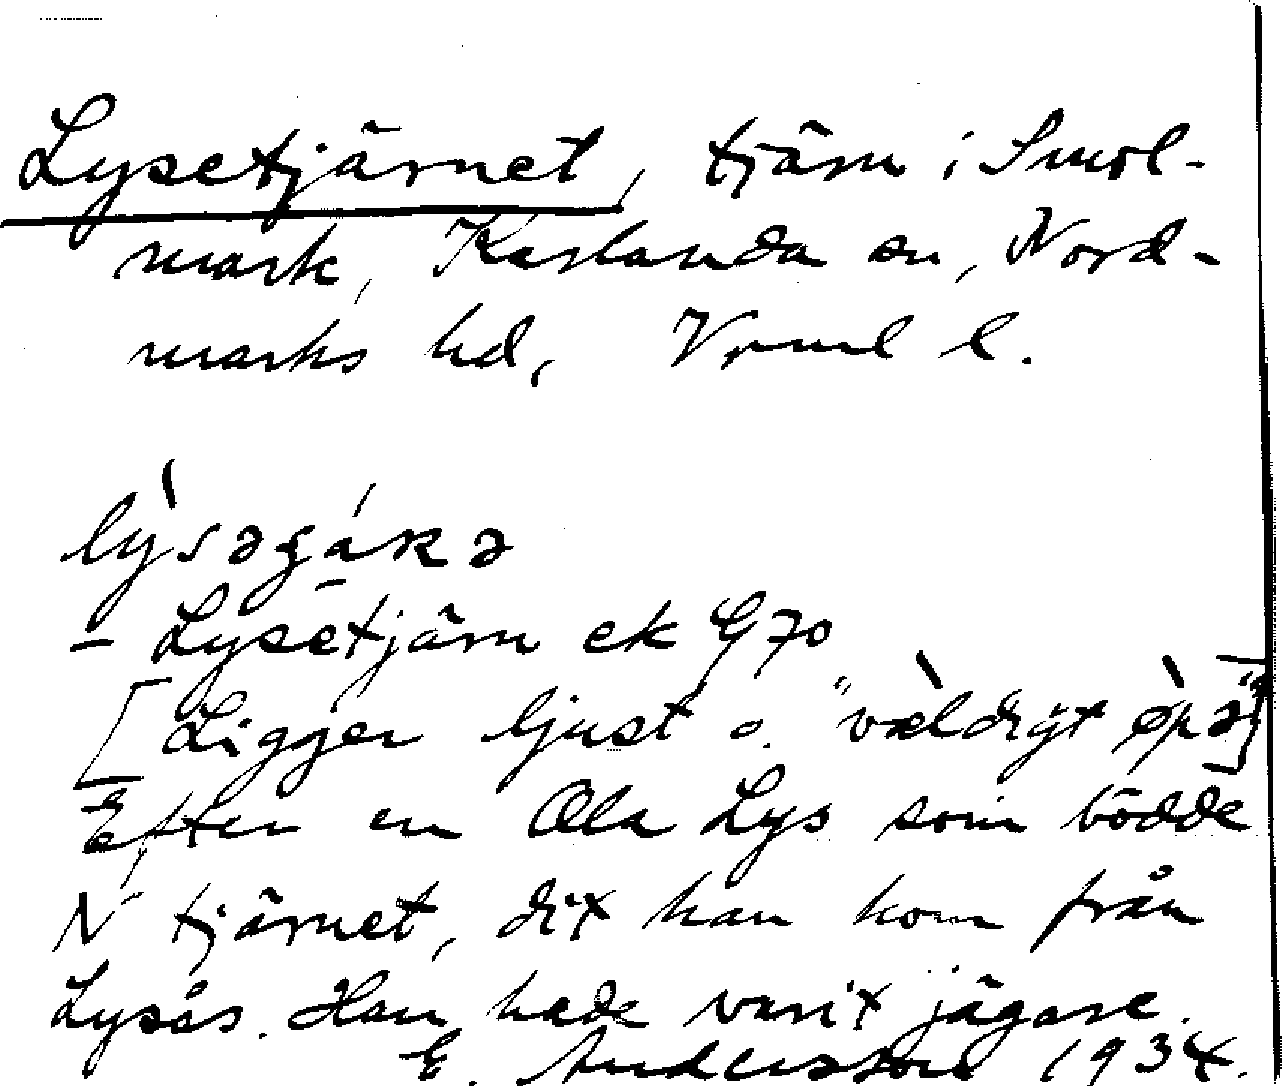 Lysetjärnet, tjärn i Smol-
mark, Karlanda sn, Nord-
marks hd, Vrml l.
lỳsəgáʀə
– Lysetjärn ek G70
[Ligger ljust o. "vældigt öpə"]
Efter en Ola Lys som bodde
N tjärnet, dit han kom från
Lysås. Han hade varit jägare.
E. Andersson 1934.